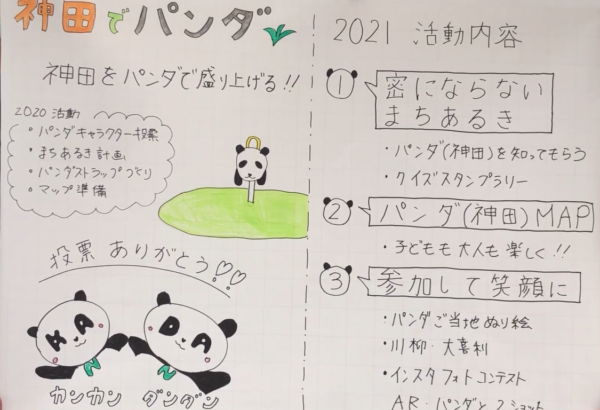 神田でパンダ
神田をパンダで盛り上げる!!
2020 活動
・パンダキャラクター投票
・まちあるき計画
・パンダストラップづくり
・マップ準備
投票ありがとう!!
KAN
DAN
カンカン ダンダン
2021 活動内容
① 密にならない
まちあるき
・パンダ(神田)を知ってもらう
・クイズスタンプラリー
② パンダ(神田)MAP
・子どもも大人も楽しく!!
③ 参加して笑顔に
・パンダご当地ぬり絵
・川柳・大喜利
・インスタフォトコンテスト
AR・パンダと2ショット